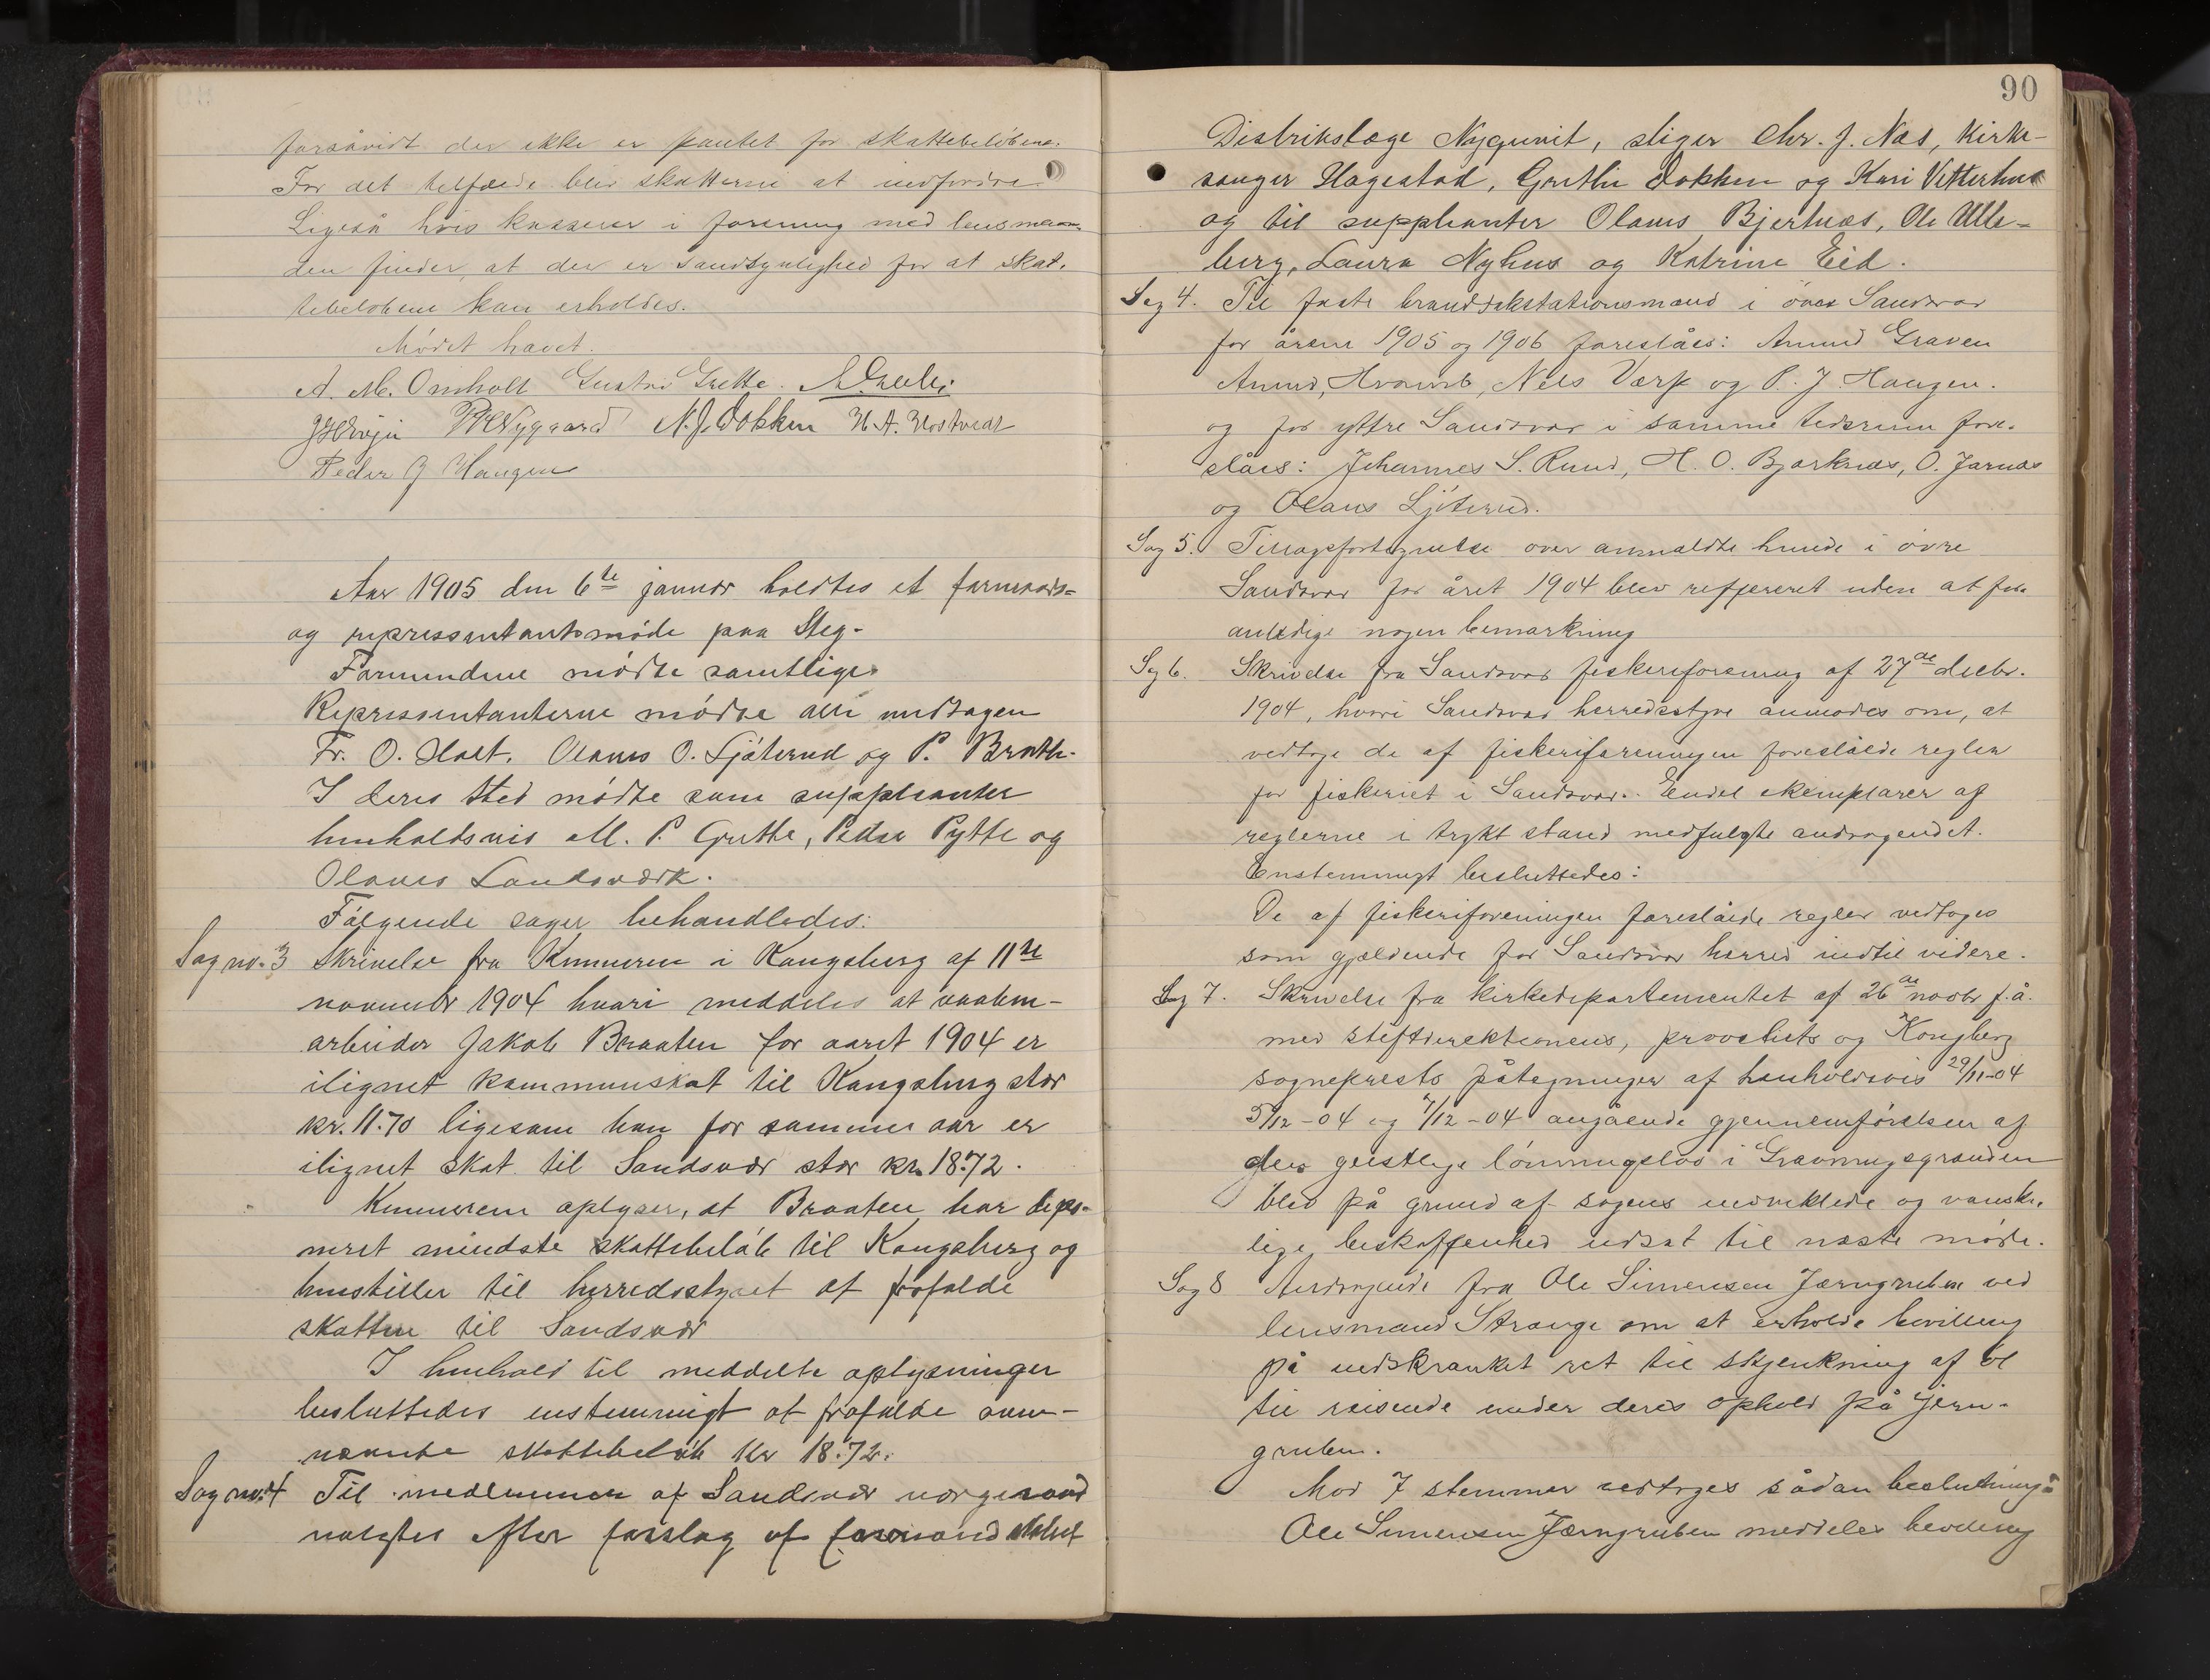 forsåvidt der ikke er pantet for skattebeløbene.
For det tilfælde blir skatterne at indfordre.
Ligeså hvis kasserer i forening med lensman-
den finder, at der er sandsynlighed for at skat-
tebeløbene kan erholdes.
Mødet hævet.
A. M. Omholt Gustav Grette.
P. Nygaard N. J. Dokken H. A. Hostvedt
Peder J Haugen
Aar 1905 den 6te januar holdtes et formands-
og repræsentantmøde paa Steg.
Formændene mødte samtlige
Repræsentanterne mødte alle undtagen
Fr. O. Holt, Olaves O. Ljøterud og P. Bråth.
I deres sted mødte som suppleanter
henholdsvis M. P. Grette, Peder Pytte og
Olaves Landsværk.
Følgende sager behandledes:
Sag no. 3 Skrivelse fra Kemneren i Kongsberg af 11te
november 1904 hvori meddeles at vaaben-
arbeider Jakob Braaten for aaret 1904 er
ilignet kommuneskat til Kongsberg stor
kr. 11.70 ligesom han for samme aar er
ilignet skat til Sandsvær stor kr. 18.72.
Kemneren oplyser, at Braaten har depo-
neret mindste skattebeløb til Kongsberg og
henstiller til herredsstyret at frafalde
skatten til Sandsvær
I henhold til meddelte oplysninger
besluttedes enstemmigt at frafalde oven-
nævnte skattebeløb kr 18.72.
Sag no. 4 Til medlemmer af Sandsvær vergeraad
valgtes efter forslag af formandskabet
90
Distriktslæge Nyquvist, stiger Chr. J. Næs, Kirke-
sanger Hagestad, Grethe Dokken og Kari Vetterhus
og til suppleanter Olaves Bjertnæs, Ole Ulle-
berg, Laura Nyhus og Katrine Eid.
Sag 4. Til faste brandtakstationsmænd i øvre Sandsvær
for årene 1905 og 1906 foreslåes: Amund Graven
Amund Hvamb, Nils Værp og P. J. Haugen.
og for ytre Sandsvær i samme tidsrum fore-
slåes: Johannes S. Ruud, H. O. Bjørknæs, O. Jarnæs
og Olaus Ljøterud.
Sag 5. Tillægsfortegnelse over anmeldte hunde i øvre
Sandsvær for året 1904 blev reffereret uden at for-
anledige nogen bemærkning
Sag 6. Skrivelse fra Sandsvær fiskeriforening af 27de decbr.
1904, hvori Sandsvær herredsstyre anmodes om, at
vedtage de af fiskeriforeningen foreslåede regler
for fiskeriet i Sandsvær. Endel eksemplarer af
reglerne i trykt stand medfulgte andragendet.
Enstemmigt besluttedes:
De af fiskeriforeningen foreslåede regler vedtages
som gjældende for Sandsvær herred indtil videre.
Sag 7. Skrivelse fra kirkedepartementet af 26de novbr f.å.
med stiftdirektionens, provstiets og Kongsberg
sogneprests påtegninger af henholdsvis 29/11-04
5/12-04 og 7/12-04 angående gjennemførelsen af
den geistlige lønningslov i Gravningsgrænden
blev på grund af sagens indviklede og vanske-
lige beskaffenhed udsat til næste møde.
Sag 8 Andragende fra Ole Simensen Jærngruben ved
lensmand Strange om at erholde bevilling
på indskrænket ret til skjenkning af øl
til reisende under deres ophold på Jern-
gruben.
Mod 7 stemmer vedtoges sådan beslutning:
Ole Simensen Jærngruben meddeles bevilling